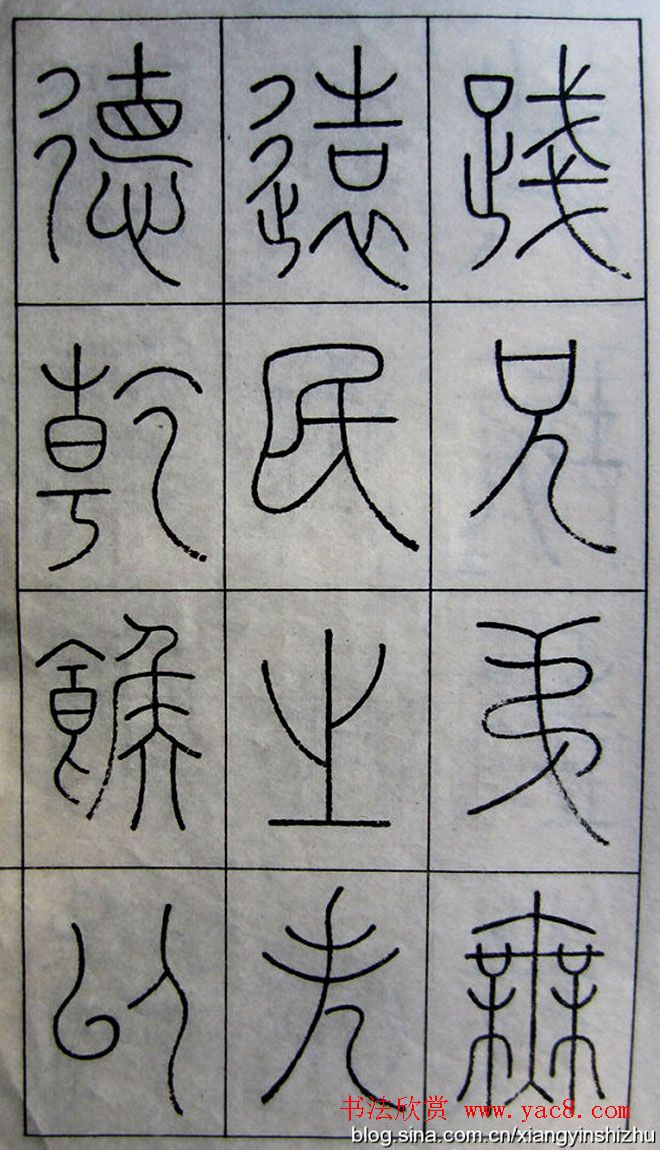 踐兄弟無
遠民之失
德乾餱以
书法欣赏 www.yac8.com
blog.sina.com.cn/xiangyinshizhu